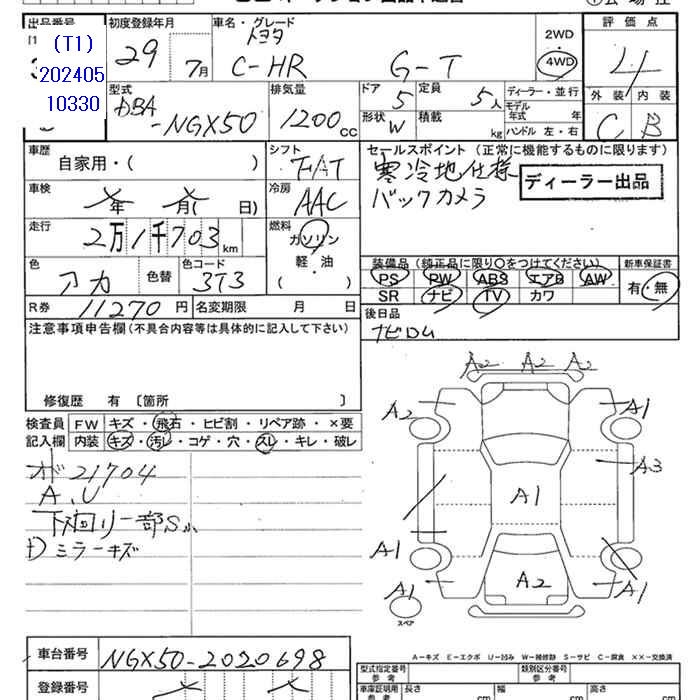 出品番号 初度登録年月 車名・グレード 評価点
(T1)
202405
10330
29年 7月 トヨタ
C-HR G-T
2WD
4WD
4
外装 内装
C B
型式 排気量 ドア 定員 ディーラー・並行
DBA
-NGX50 1200cc 5 5人
モデル年式 年
形状 W 積載 kg ハンドル 左・右
車歴 シフト セールスポイント (正常に機能するものに限ります)
自家用・( ) F/AT 寒冷地仕様
車検 冷房 バックカメラ ディーラー出品
年 月( 日) AAC
走行 燃料
2万1千703km ガソリン
軽・油
( )
色 色替 色コード
アカ 3T3
装備品 (純正品に限り○をつけてください) 新車保証書
PS PW ABS エアB AW 有・無
SR ナビ TV カワ
R券 11270円 名変期限 月 日 後日品
注意事項申告欄(不具合内容等は具体的に記入して下さい) ナビROM
修復歴 有 〔箇所 〕
検査員 FW キズ・飛石・ヒビ割・リペア跡・×要
記入欄 内装 キズ・汚レ・コゲ・穴・スレ・キレ・破レ
メーター 21704
A、U
下廻り一部S小
ミラーキズ
A2 A2 A2
A2 A1
A3
A1
A1
A1 A2 A1
スペア
A−キズ E−エクボ U−凹み W−補修跡 S−サビ C−腐食 ××−交換済
車台番号 NGX50-2020698
登録番号
型式指定番号 参考 類別区分番号 参考
車庫証明用 参考 長さ cm 幅 cm 高さ cm